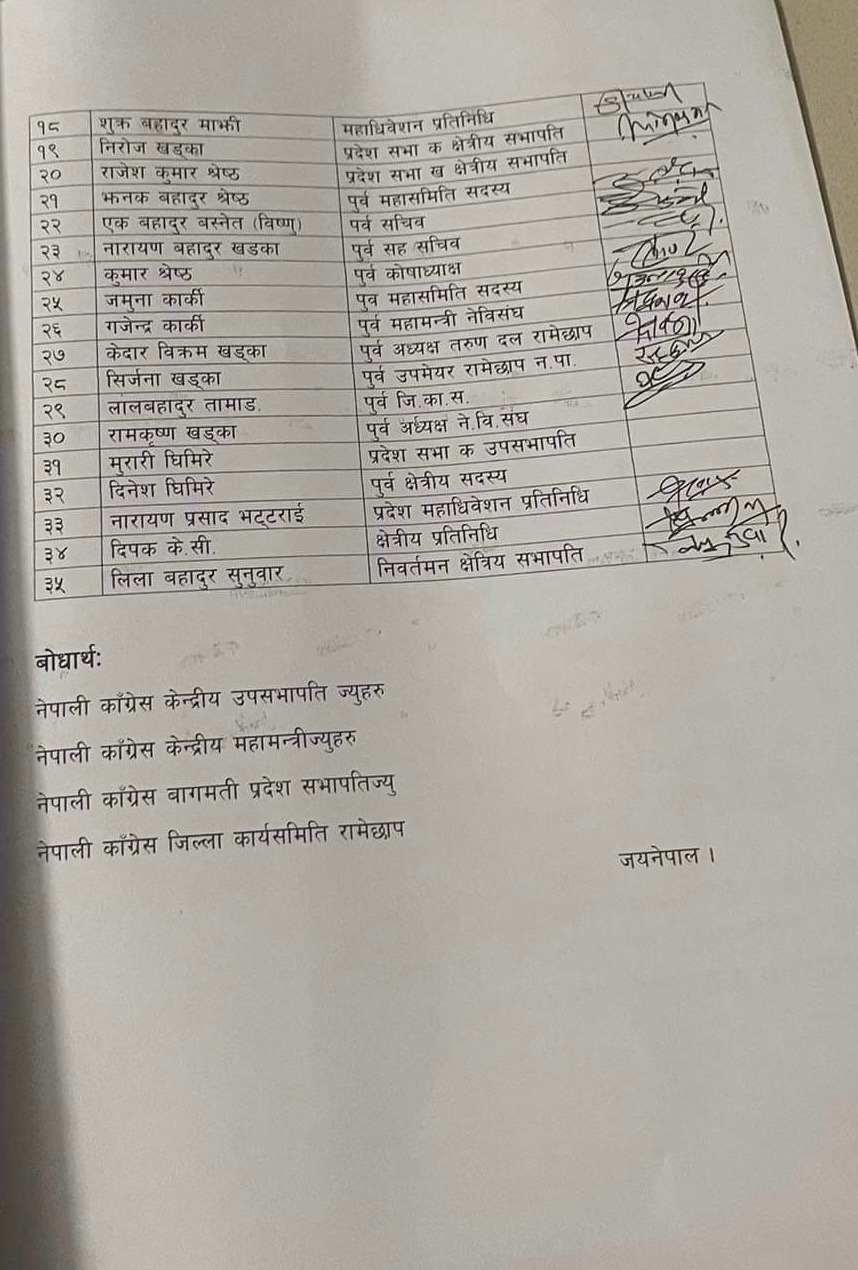 १८ शुक्र बहादुर माझी महाधिवेशन प्रतिनिधि
१९ निरोज खड्का प्रदेश सभा क क्षेत्रीय सभापति
२० राजेश कुमार श्रेष्ठ प्रदेश सभा ख क्षेत्रीय सभापति
२१ झनक बहादुर श्रेष्ठ पुर्व महासमिति सदस्य
२२ एक बहादुर बस्नेत (विष्णु) पर्व सचिव
२३ नारायण बहादुर खडका पुर्व सह सचिव
२४ कुमार श्रेष्ठ पुर्व कोषाध्याक्ष
२५ जमुना कार्की पुव महासमिति सदस्य
२६ गजेन्द्र कार्की पुर्व महामन्त्री नेविसंघ
२७ केदार विक्रम खड्का पुर्व अध्यक्ष तरुण दल रामेछाप
२८ सिर्जना खड्का पुर्व उपमेयर रामेछाप न.पा.
२९ लालबहादुर तामाड. पुर्व जि.का.स.
३० रामकृष्ण खड्का पुर्व अर्ध्यक्ष ने.वि.संघ
३१ मुरारी घिमिरे प्रदेश सभा क उपसभापति
३२ दिनेश घिमिरे पुर्व क्षेत्रीय सदस्य
३३ नारायण प्रसाद भट्टराई प्रदेश महाधिवेशन प्रतिनिधि
३४ दिपक के.सी. क्षेत्रीय प्रतिनिधि
३५ लिला बहादुर सुनुवार निवर्तमन क्षेत्रिय सभापति
बोधार्थः
नेपाली काँग्रेस केन्द्रीय उपसभापति ज्युहरु
नेपाली काँग्रेस केन्द्रीय महामन्त्रीज्युहरु
नेपाली काँग्रेस बागमती प्रदेश सभापतिज्यु
नेपाली काँग्रेस जिल्ला कार्यसमिति रामेछाप
जयनेपाल ।